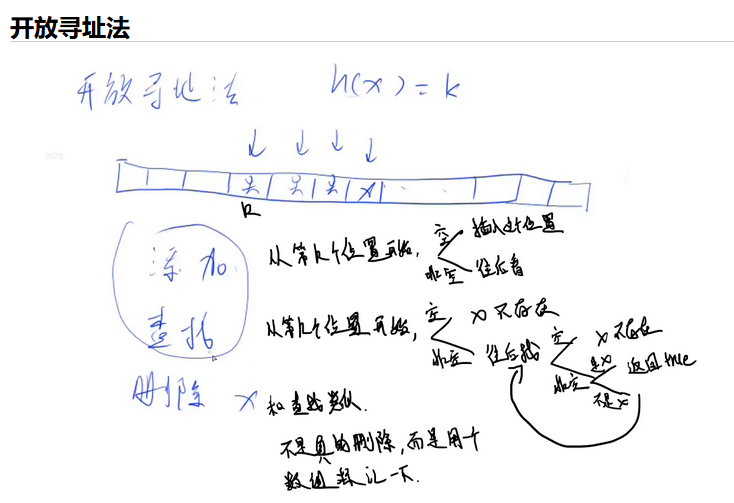 开放寻址法
开放寻址法 h(x)=k
k
添加 从第k个位置开始, 空 插入这个位置
非空 往后看
查找 从第k个位置开始, 空 x不存在
非空 往后找 空 x不存在
非空 是x 返回true
不是x
删除 x 和查找类似.
不是真的删除,而是用个
数组标记一下.